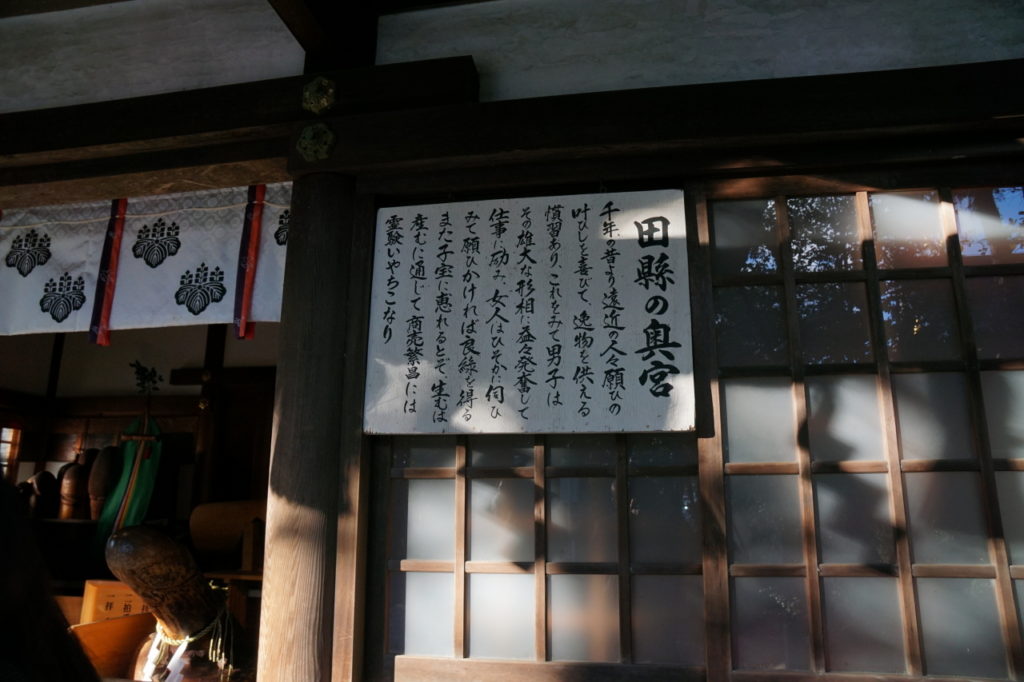 田縣の奥宮
千年の昔より遠近の人々願ひの
叶ひしを喜びて、逸物を供える
慣習あり、これをみて男子は
その雄大な形相に益々発奮して
仕事に励み、女人はひそかに伺ひ
みて願ひかければ良縁を得る
また子宝に恵れるとで、生むは
産むに通じて商売繁昌には
霊験いやちこなり